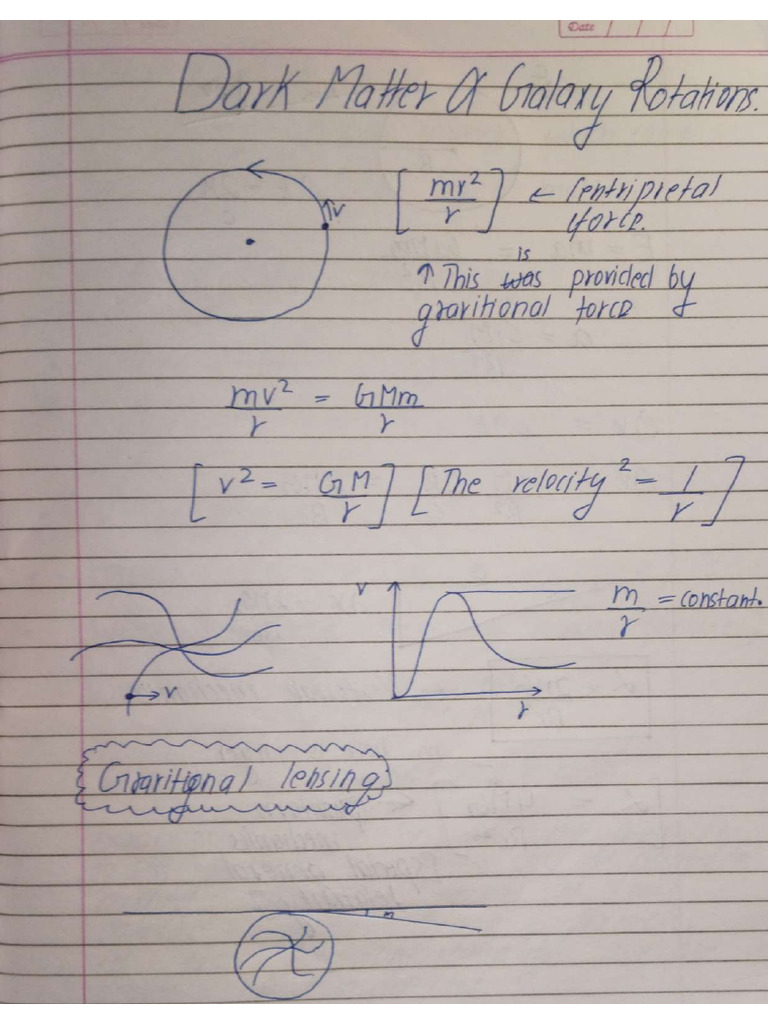 Date
Dark Matter & Galaxy Rotations.
v
[mv²/r] ← Centripretal
force.
is
↑ This was provided by
gravitional force
mv²/r = GMm/r
[v² = GM/r] [The velocity² = 1/r]
v
m/r = constant.
v
r
Gravitional lensing